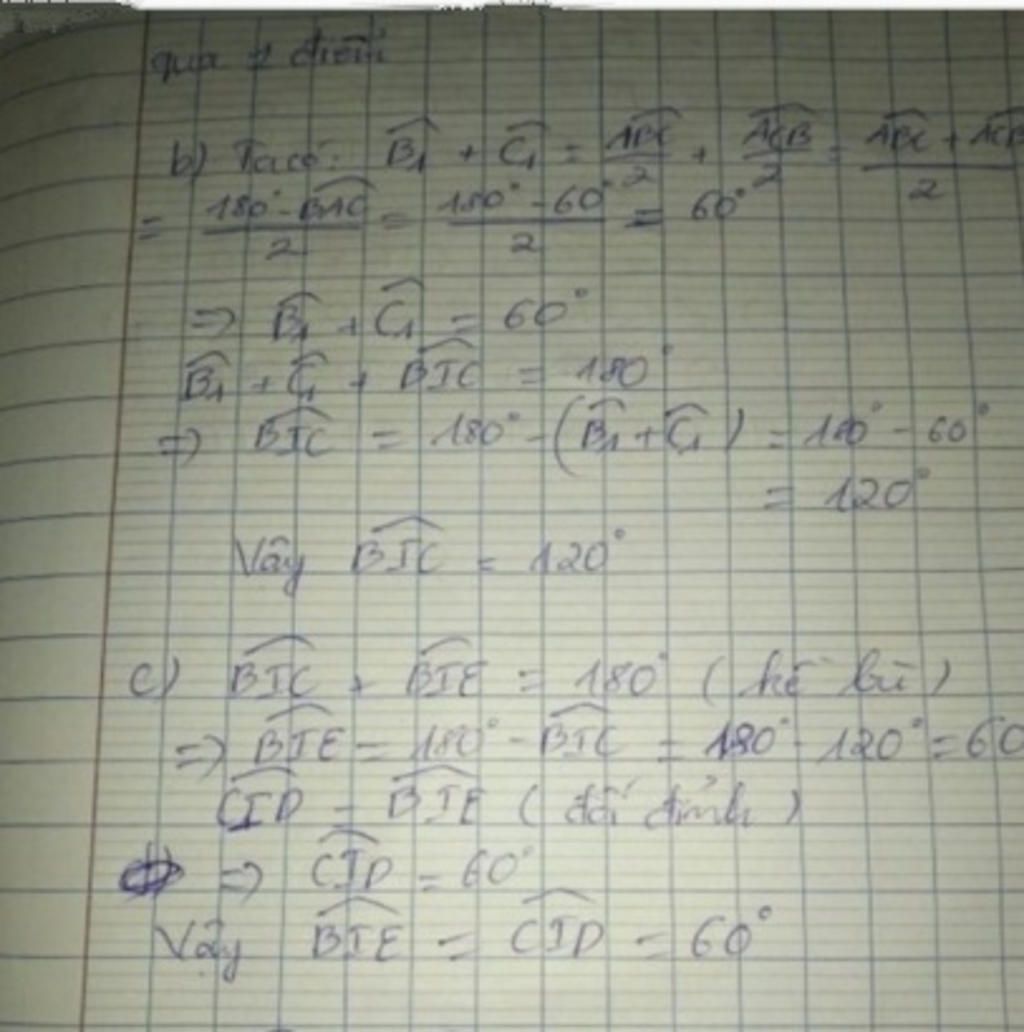 qua 1 điểm
b) Ta có: B̂₁ + Ĉ₁ = ABC/2 + ACB/2 = (ABC + ACB)/2
= (180° - BAC)/2 = (180° - 60°)/2 = 60°
=> B̂₁ + Ĉ₁ = 60°
B̂₁ + Ĉ₁ + BIC = 180°
=> BIC = 180° - (B̂₁ + Ĉ₁) = 180° - 60°
= 120°
Vậy BIC = 120°
c) BIC + BIE = 180° (kề bù)
=> BIE = 180° - BIC = 180° - 120° = 60
CID = BIE (đối đỉnh)
=> CID = 60°
Vậy BIE = CID = 60°